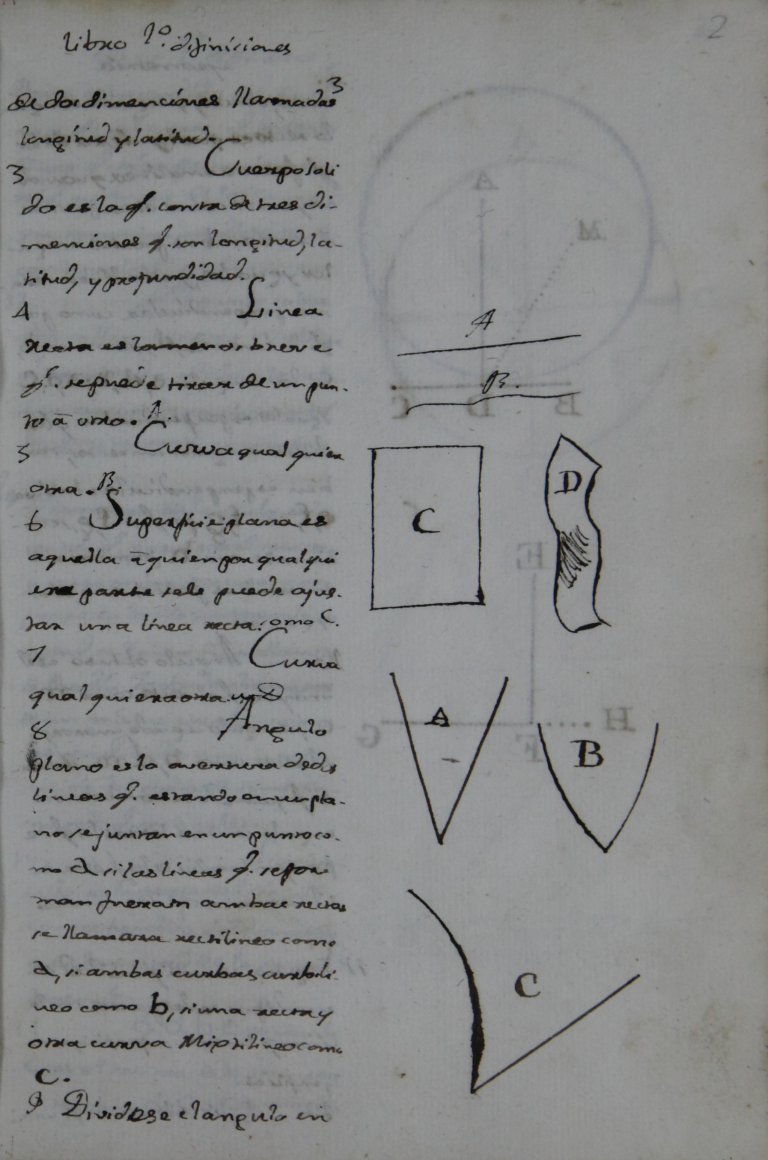 2
Libro 1º. difiniciones
3
de dos dimenciones llamadas
longitud y latitud.
3 Cuerpo soli
do es la q̃. consta de tres di-
menciones q̃. son longitud, la-
titud, y profundidad.
4 Linea
recta es la menos breve
q̃. se puede tirar de un pun-
to ā otro. A.
5 Curva qual quier
otra. B.
6 Superficie plana es
aquella ā quien por qualqui
era parte se le puede ajus-
tar una línea recta como C.
7 Curva
qual quiera otra D
8 Angulo
plano es la avertura de dos
lineas q̃. estando en un pla-
no se juntan en un punto co-
mo a si las líneas q̃. se for
man fueran ambas rectas
se llamara rectilineo como
a, si ambas curbas curbili-
neo como b, si una recta y
otra curva Mixtilineo como
c.
9 Dividese el angulo en
A
B.
C
D
A
B
C